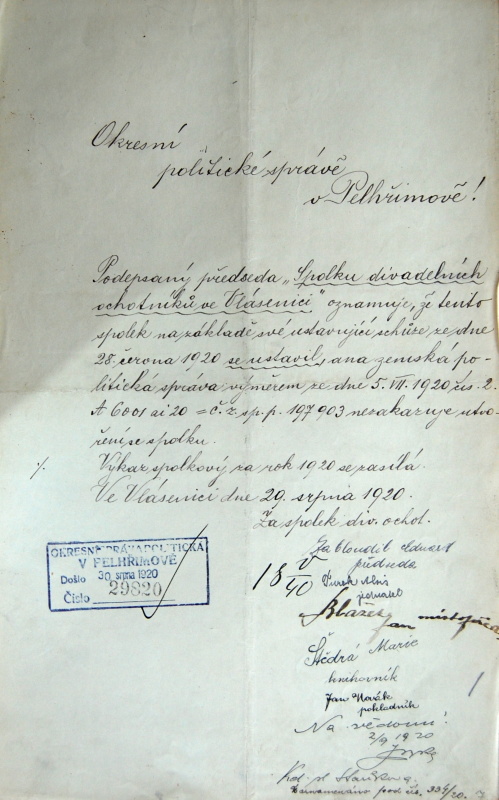 Okresní
politické správě
v Pelhřimově!
Podepsaný předseda „Spolku divadelních
ochotníků ve Vlásenici" oznamuje, že tento
spolek na základě své ustavující schůze ze dne
28. června 1920 se ustavil, ana zemská po-
litická správa výměrem ze dne 5. VII. 1920 čís. 2.
A 6001 ai 20 = č. z. sp. p. 197903 nezakazuje utvo-
ření se spolku.
⁒ Výkaz spolkový za rok 1920 se zasílá.
Ve Vlásenici dne 29. srpna 1920.
Za spolek div. ochot.
Zabloudil Eduard
předseda
OKRESNÍ SPRÁVA POLITICKÁ
V PELHŘIMOVĚ
Došlo 30. srpna 1920
Číslo 29820
18 V/40
jednatel
Blažek Jan místopřed.
Štědrá Marie
knihovník
Jan Novák
pokladník
Na vědomí!
2/9 1920
Zaznamenáno pod čís. 334/20.